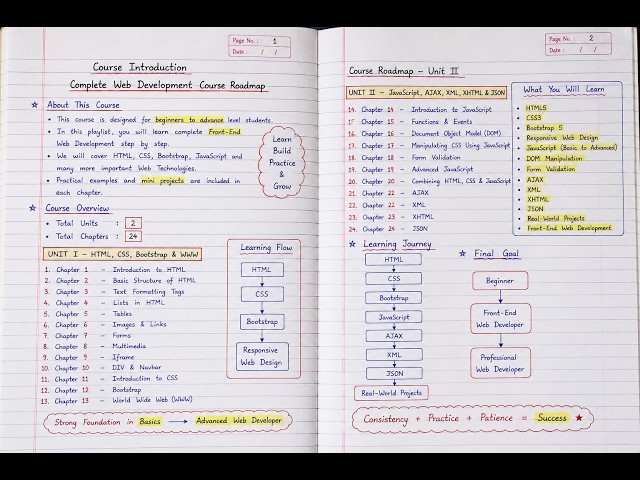 Page No.: 1
Date: / /
Course Introduction
Complete Web Development Course Roadmap
☆ About This Course
• This course is designed for beginners to advance level students.
• In this playlist, you will learn complete Front-End
Web Development step by step.
• We will cover HTML, CSS, Bootstrap, JavaScript and
many more important Web Technologies.
• Practical examples and mini projects are included in
each chapter.
Learn
Build
Practice
&
Grow
☆ Course Overview
• Total Units : 2
• Total Chapters : 24
UNIT I – HTML, CSS, Bootstrap & WWW
1. Chapter 1 – Introduction to HTML
2. Chapter 2 – Basic Structure of HTML
3. Chapter 3 – Text Formatting Tags
4. Chapter 4 – Lists in HTML
5. Chapter 5 – Tables
6. Chapter 6 – Images & Links
7. Chapter 7 – Forms
8. Chapter 8 – Multimedia
9. Chapter 9 – Iframe
10. Chapter 10 – DIV & Navbar
11. Chapter 11 – Introduction to CSS
12. Chapter 12 – Bootstrap
13. Chapter 13 – World Wide Web (WWW)
Learning Flow
HTML
CSS
Bootstrap
Responsive
Web Design
Strong Foundation in Basics → Advanced Web Developer
Page No.: 2
Date: / /
Course Roadmap – Unit II
UNIT II – JavaScript, AJAX, XML, XHTML & JSON
14. Chapter 14 – Introduction to JavaScript
15. Chapter 15 – Functions & Events
16. Chapter 16 – Document Object Model (DOM)
17. Chapter 17 – Manipulating CSS Using JavaScript
18. Chapter 18 – Form Validation
19. Chapter 19 – Advanced JavaScript
20. Chapter 20 – Combining HTML, CSS & JavaScript
21. Chapter 21 – AJAX
22. Chapter 22 – XML
23. Chapter 23 – XHTML
24. Chapter 24 – JSON
What You Will Learn
• HTML5
• CSS3
• Bootstrap 5
• Responsive Web Design
• JavaScript (Basic to Advanced)
• DOM Manipulation
• Form Validation
• AJAX
• XML
• XHTML
• JSON
• Real-World Projects
• Front-End Web Development
☆ Learning Journey
HTML
CSS
Bootstrap
JavaScript
AJAX
XML
JSON
Real-World Projects
☆ Final Goal
Beginner
Front-End
Web Developer
Professional
Web Developer
Consistency + Practice + Patience = Success ★